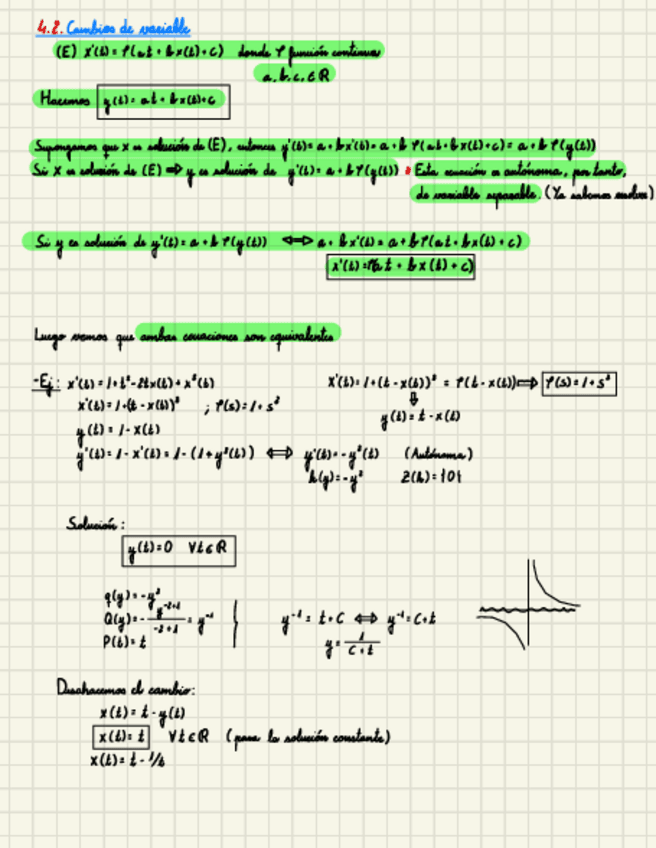 4.2. Cambios de variable
(E) x'(t) = φ(at + bx(t) + c) donde φ función continua
a, b, c, ∈ R
Hacemos y(t) = at + bx(t) + c
Supongamos que x es solución de (E), entonces y'(t) = a + bx'(t) = a + b φ(at + bx(t) + c) = a + b φ(y(t))
Si x es solución de (E) ⟹ y es solución de y'(t) = a + b φ(y(t)) • Esta ecuación es autónoma, por tanto,
de variable separable. (Ya sabemos resolver)
Si y es solución de y'(t) = a + b φ(y(t)) ⟺ a + bx'(t) = a + b φ(at + bx(t) + c)
x'(t) = φ(at + bx(t) + c)
Luego vemos que ambas ecuaciones son equivalentes
-Ej: x'(t) = 1 + t² - 2tx(t) + x²(t)
x'(t) = 1 + (t - x(t))² ; φ(s) = 1 + s²
y(t) = 1 - x(t)
y'(t) = 1 - x'(t) = 1 - (1 + y²(t)) ⟺ y'(t) = -y²(t) (Autónoma)
h(y) = -y² Z(h) = {0}
x'(t) = 1 + (t - x(t))² = φ(t - x(t)) ⟹ φ(s) = 1 + s²
⇓
y(t) = t - x(t)
Solución:
y(t) = 0 ∀t ∈ R
q(y) = -y²
Q(y) = - y^{-2+1} / -2+1 = y^{-1}
P(t) = t
y^{-1} = t + C ⟺ y^{-1} = C + t
y = 1 / C + t
Deshacemos el cambio:
x(t) = t - y(t)
x(t) = t ∀t ∈ R (para la solución constante)
x(t) = t - 1/t